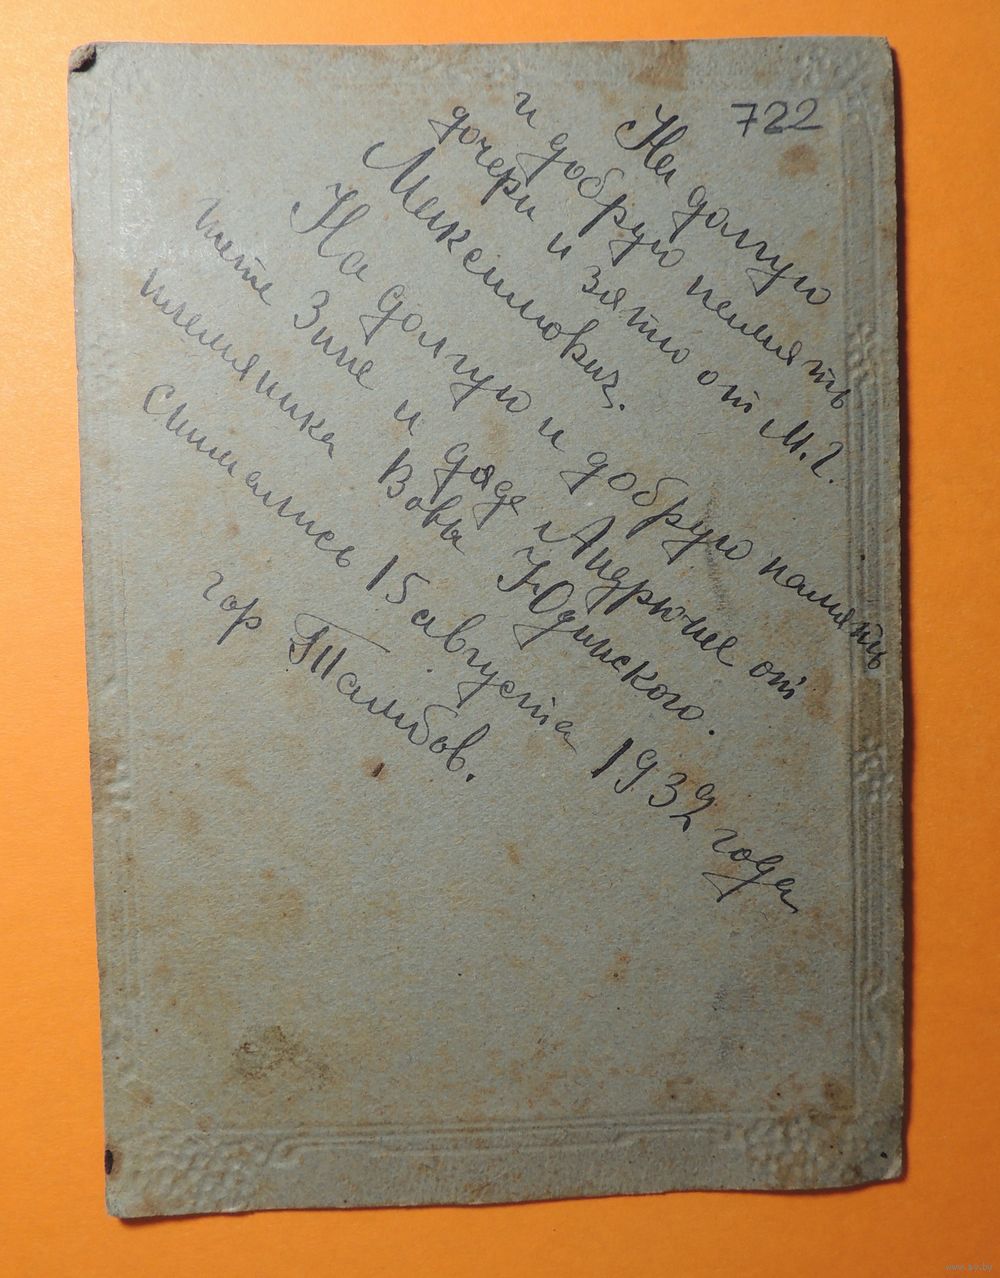 722
На долгую
и добрую память
дочери и зятю от М. Г.
Максимович.
На долгую и добрую память
тете Зине и дяде Андрюше от
племянника Вовы Юдинского.
Снимались 15 августа 1932 года
гор Тамбов.
www.ay.by